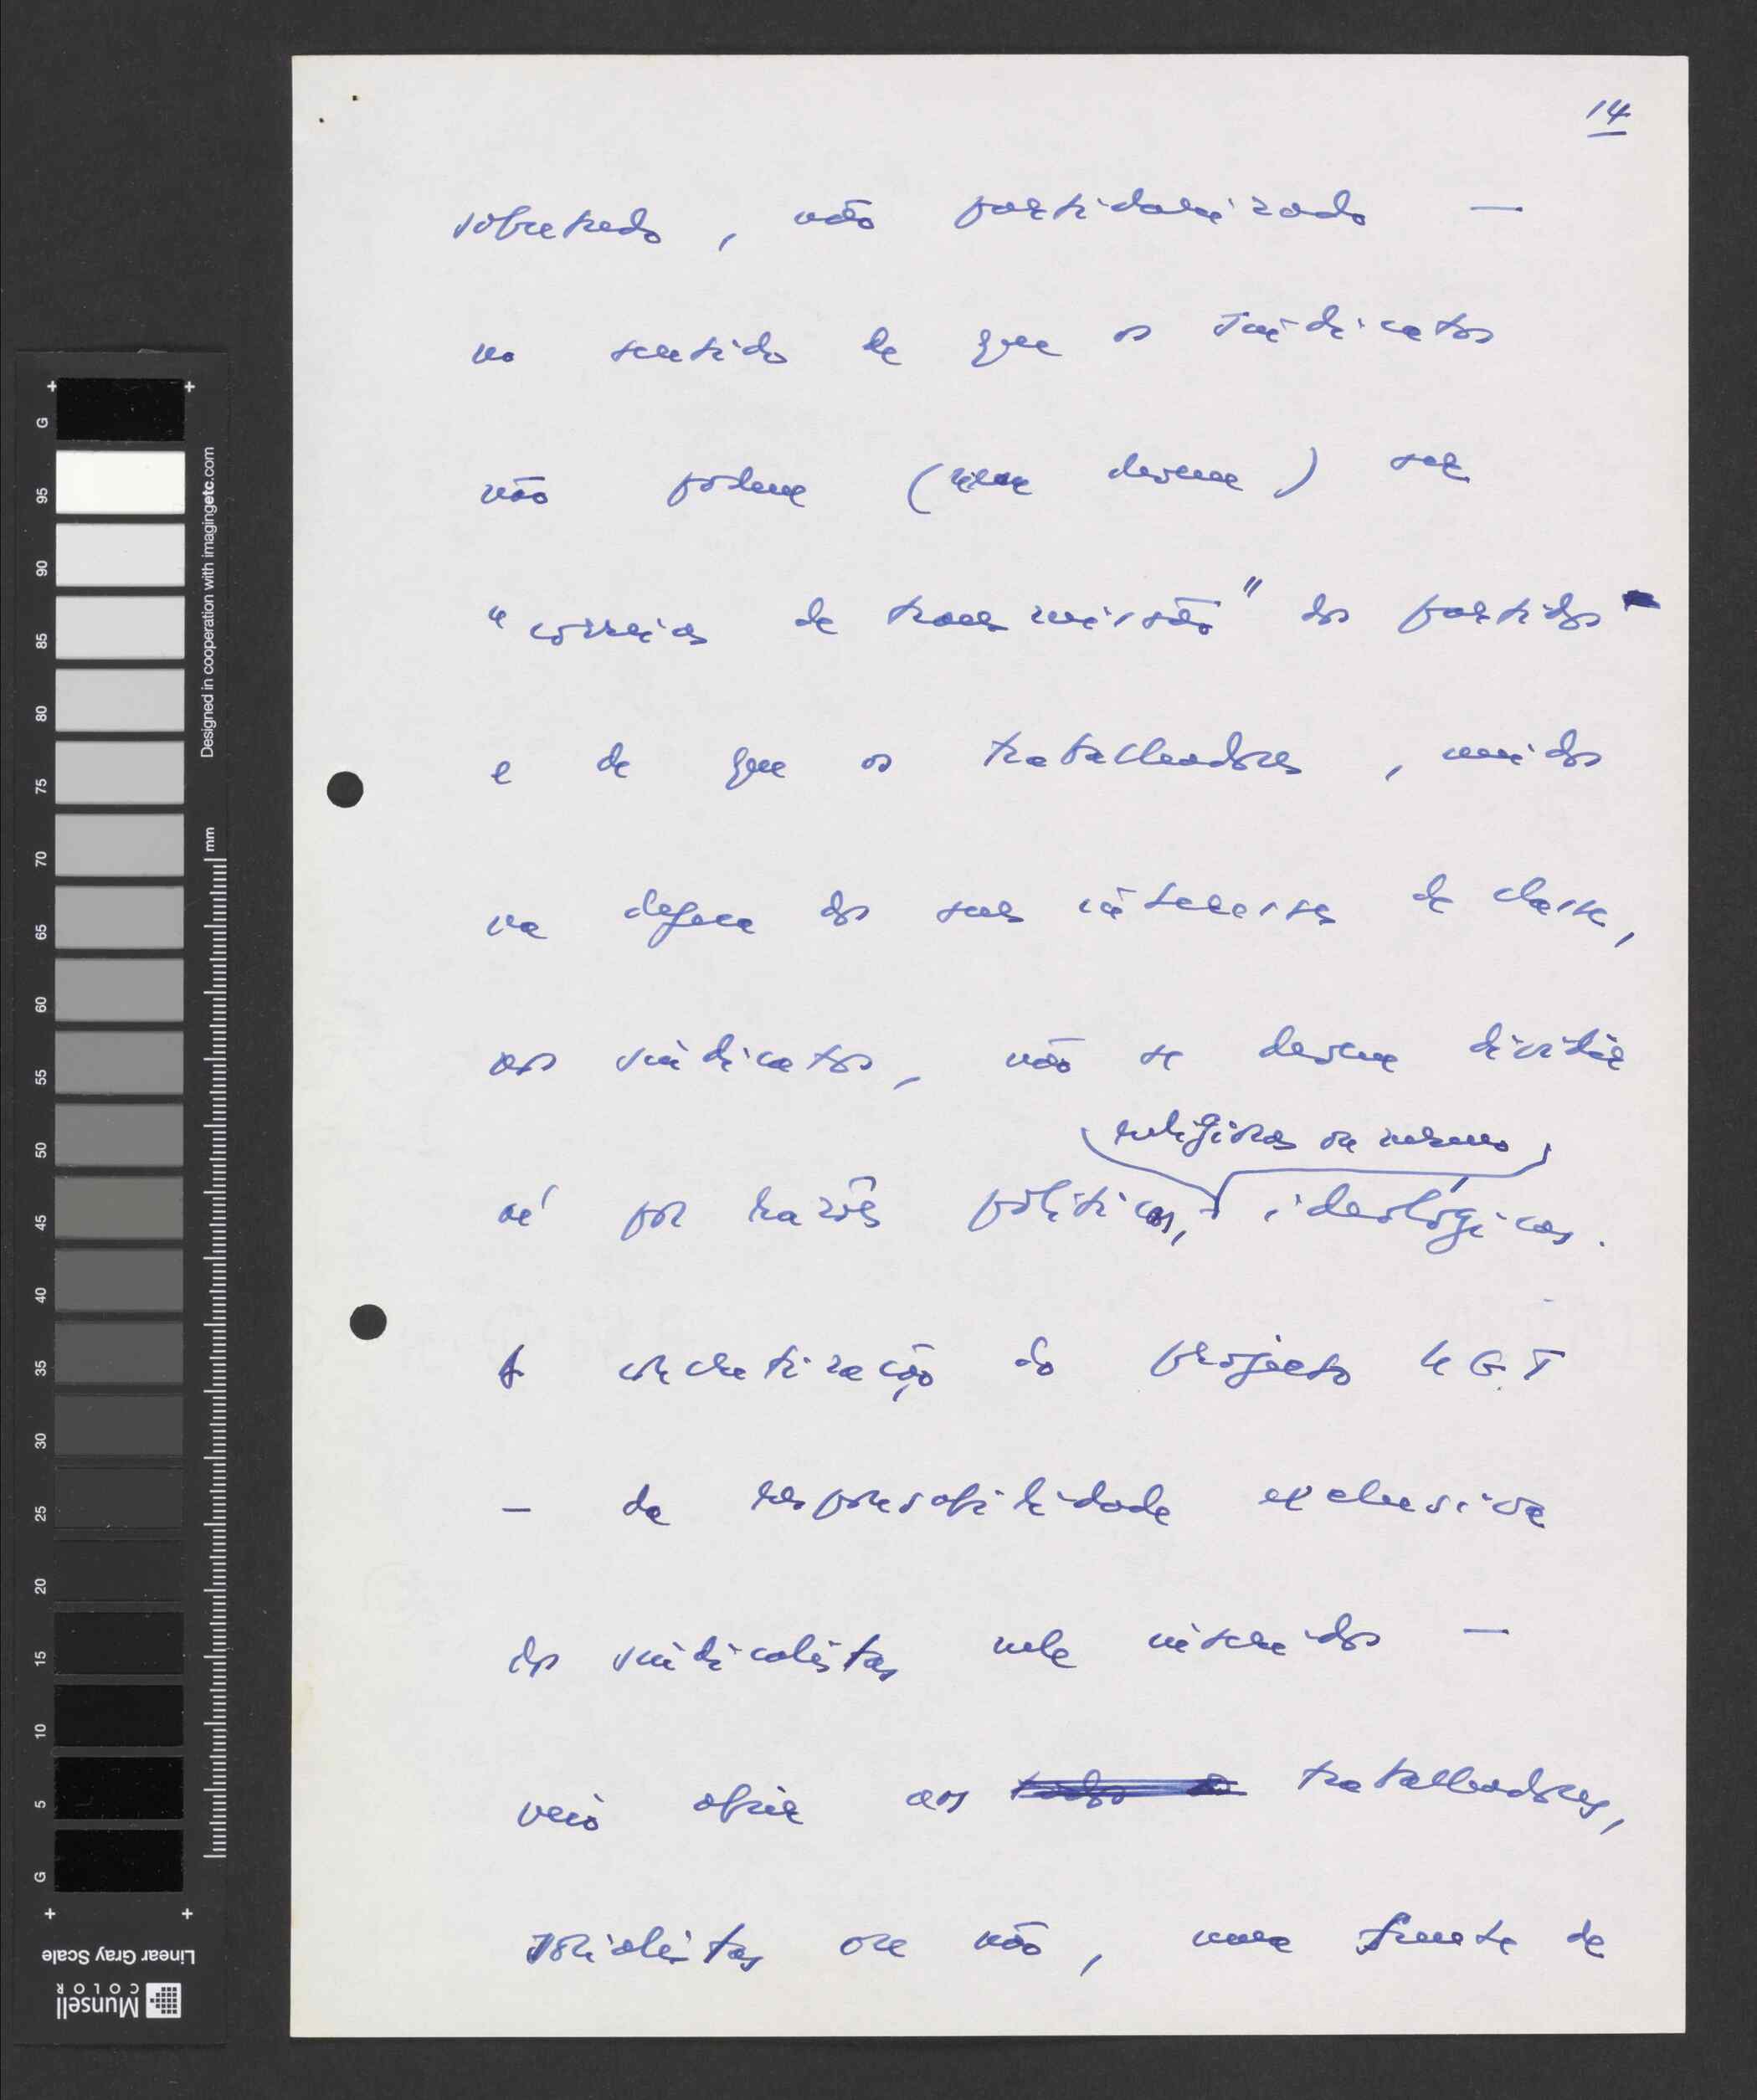 14
sobretudo, não partidarizado —
no sentido de que os sindicatos
não podem (nem devem) ser
"correias de transmissão" dos partidos
e de que os trabalhadores, unidos
na defesa dos seus interesses de classe,
nos sindicatos, não se devem dividir
religiosas ou mesmo
aí por razões políticas, ideológicas.
A concretização do projecto UGT
— da responsabilidade exclusiva
dos sindicalistas nele inseridos —
veio abrir aos trabalhadores,
socialistas ou não, uma frente de
G
95
90
85
80
75
70
65
60
55
50
45
40
35
30
25
20
15
10
5
G
Designed in cooperation with imagingetc.com
mm
Linear Gray Scale
Munsell
COLOR